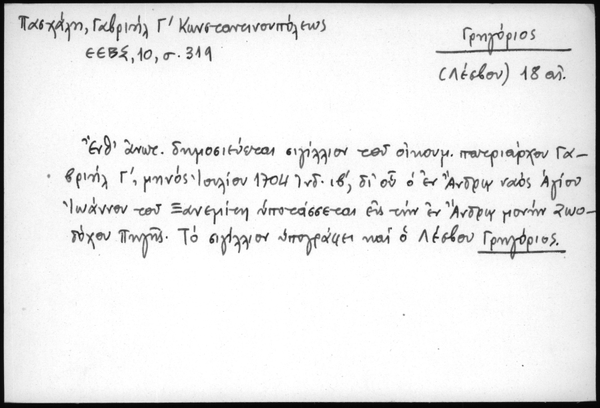 Πασχάλη, Γαβριήλ Γ' Κωνσταντινουπόλεως
ΕΕΒΣ, 10, σ. 319
Γρηγόριος
(Λέσβου) 18 αἰ.
Ἔνθ' ἀνωτ. δημοσιεύεται σιγίλλιον τοῦ οἰκουμ. πατριάρχου Γα-
βριήλ Γ', μηνός Ἰουλίου 1704 Ἰνδ. ιβ', δι' οὗ ὁ ἐν Ἄνδρῳ ναός Ἁγίου
Ἰωάννου τοῦ Ξανεμίτη ὑποτάσσεται εἰς τήν ἐν Ἄνδρῳ μονήν Ζωο-
δόχου Πηγῆς. Τό σιγίλλιον ὑπογράφει καί ὁ Λέσβου Γρηγόριος.